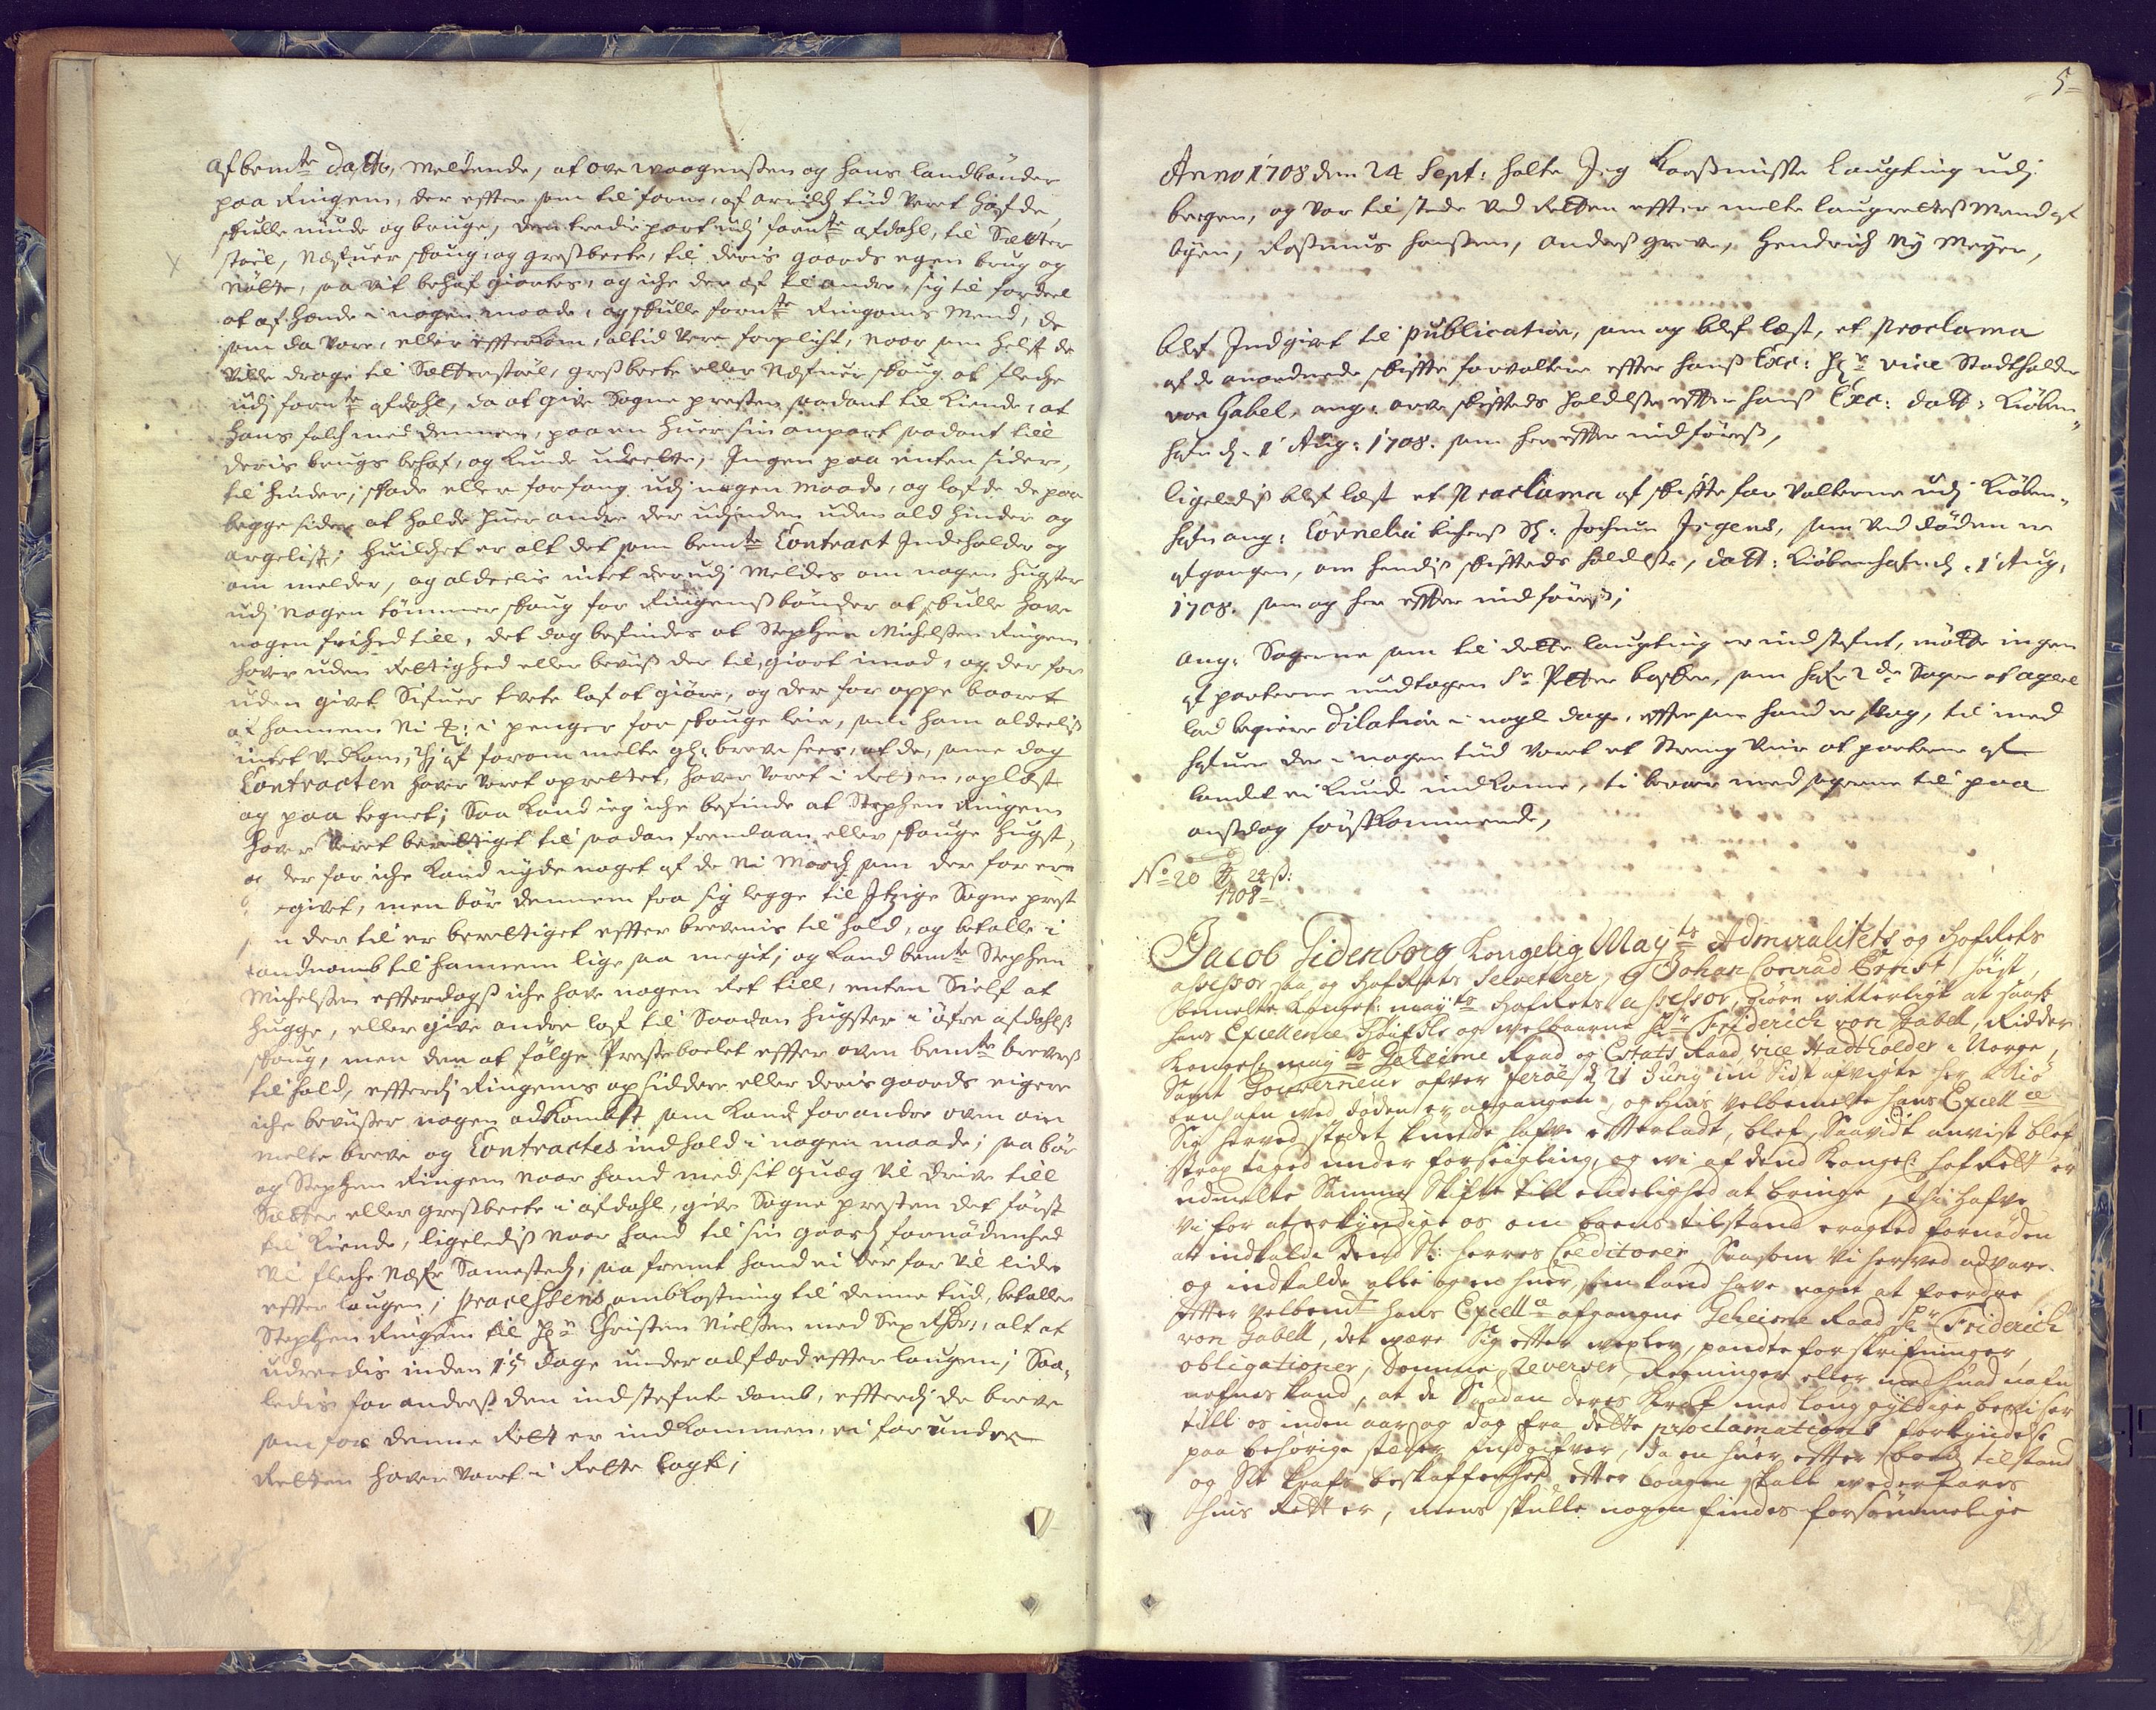 af bemte dato, meldende, at Ove Waagenssen og hans landbönder
paa Ringem, der effter som til forne, af arrild tiid veret hafde,
skulle niude og bruge, den tredie part udj fornte afdahl, til Sætter
stöel, Næfuer skoug, og gressbeete, til deris gaards egen brug og
nötte, saa vit behof giöris, og iche der af til andre, sig til fordeel
at af hænde i nogen maade, og skulle fornte Ringems Mend, de
som da vare, eller effterkom, altid vere forplicht, naar som helst de
ville drage til Sætterstöel, gressbeete eller Næfuer skoug at fleche
udj fornte afdahl, da at give Sogne presten saadant til kiende, at
hans folch med dennem, paa en huer sin anpart saadant till
deris brugs behof, og kunde udrette, Ingen paa enten sider,
til hinder, skade eller forfang udj nogen maade, og lofde de paa
begge sider at holde huer andre der udjinden uden ald hinder og
argelist; huilchet er alt det som bemte Contract Indeholder og
om melder, og aldeelis intet der udj meldes om nogen hugster
udj nogen tömmer skoug for Ringenss bönder at skulle have
nogen frihed till, det dog befindes at Stephen Michelssen Ringem
haver uden Rettighed eller beviiss der til, giort imod, og der for
uden givet Sifuer tvete lof at giöre, og der for oppe baaret
af hannem Ni i penger for skouge leie, som ham aldeeliss
intet vedkom, thj af forommelte gl: breve sees, at de, samme dag
Contracten haver veret oprettet, haver veret i Retten, oplæst
og paa tegnet; Saa kand ieg iche befinde at Stephen Ringem
haver veret berettiget til saadan fremlaan eller skouge hugst,
og der for iche kand nyde noget af de Ni March som der for ere
givet, men bör dennem fra sig legge til Itzige Sogne prest
n der til er berettiget effter brevenis til hold, og betalle i
andnamb til hannem lige saa megit; og kand bemte Stephen
Michelssen effterdagss iche have nogen Ret till, enten Sielf at
hugge, eller give andre lof til Saadan hugster i öfre afdahlss
skoug, men den at fölge Presteboelet effter oven bemte breves
til hold, effterdj Ringems opsiddere eller deris gaards eigere
iche beviisser nogen adkombst som kand forandre oven om
melte breve og Contractes indhold i nogen maade; saa bör
og Stephen Ringem naar hand med sit quæg vil drive till
Sætter eller gressbeete i afdahl, give Sogne presten det först
til kiende, ligeledis naar hand til sin gaards fornödenhed
vil fleche Næfr Samesteds, saa fremt hand ei der for vil lide
effter lougen; Processens ombkostning til denne tiid, betaller
Stephen Ringem til Hr Christen Nielssen med Sex Rdr, alt at
udreedis inden 15 dage under adfærd effter lougen; Saa,
ledis forandress den indstefnte domb, effterdj de breve
som for denne Rett er indkommen, ei for under
Retten haver veret i Rette lagt;
5
Anno 1708 den 24 Sept: holte Jeg Korssmisse laugting udj
bergen, og var til stede ved Retten effter melte laugrettess Mend af
byen, Rassmus hanssen, Anderss greve, Hendrich Ny Meyer,
blef Indgivet til publication, som og blef læst, et Proclama
af de anordnede skiffte forvaltere effter hanss Exc: Hr vice Stadtholder
von Gabel, ang: arve skiffteds holdelse effter hans Exc: dat: Kiöben
hafn d: 1 Aug: 1708. som her effter indföress,
ligelediss blef læst et Proclama af skiffte forvalterne udj Kiöben,
hafn ang: Cornelia bechers Sl: Jochum Irgens, som ved döden er
afgangen, om hendiss skiffteds holdelse, datt: Kiöbenhafn d: 1 Aug,
1708. som og her effter indföress;
ang: Sagerne som til dette laugting er indstefnt, mötte ingen
af parterne undtagen Sr Petter basker, som hafr 2de Sager af agerl
lod begiere dilation i nogle dage, effter som hand er svag, til med
hafuer der i nogen tiid veret et Streng veir at parterne af
landet ei kunde indkomme, ti beroer med sagerne til paa
onssdag förstkommende,
No 20 24 ß:
1708
Jacob Sidenborg Kongelig Mayts Admiralitets og HofRets
asessor saa og HofRets Secreterer, og Johan Conrad Ernst, höist
bemelte Kongel: mayts HofRets assessor, giöre witterligt at saasom
hans Excellence Höiædle og welbaarne Hr Friderich von Gabell, Ridder
Kongel: mayts Geheime Raad og Estats Raad, vice stadtholder i Norge,
Samt Gouverneur ofver feröe, d 21 Juny sidst afvigte her i Kiö
benhafn ved döden er afgangen, og huis velbemelte hans Excellce
Sig herved stedet kunde hafve efterladt, blef, saavidt anvist blef
strax taged under forseigling, og wi af dend Kongel: hofRett er
udmelte Samme Skifte till endelighed at bringe, thi hafve
vi for at erkyndige os om boens tilstand eragted fornöden
att indkalde dend Sl: herres Creditorer, Saasom vi herved advare
og indkalde alle og en huer, som kand have noget at fordre
efter velbemte hans Excellce afgangne Geheime Raad Hr Friderich
von Gabell, det være Sig efter vexler, pandteforskrifninger
obligationer, Domme, Reverser, Regninger eller med huad nafn
nefnes kand, at de Saadan deres Kraf med lovg gyldige beviser
till os inden aar og dag fra dette proclamations forkyndelse
paa behörige steder indgifver, da en huer efter boens tilstand
og Sit krafs beskaffenhed efter lougen skall vederfares
huis Rett er, mens skulle nogen findes forsömmelige